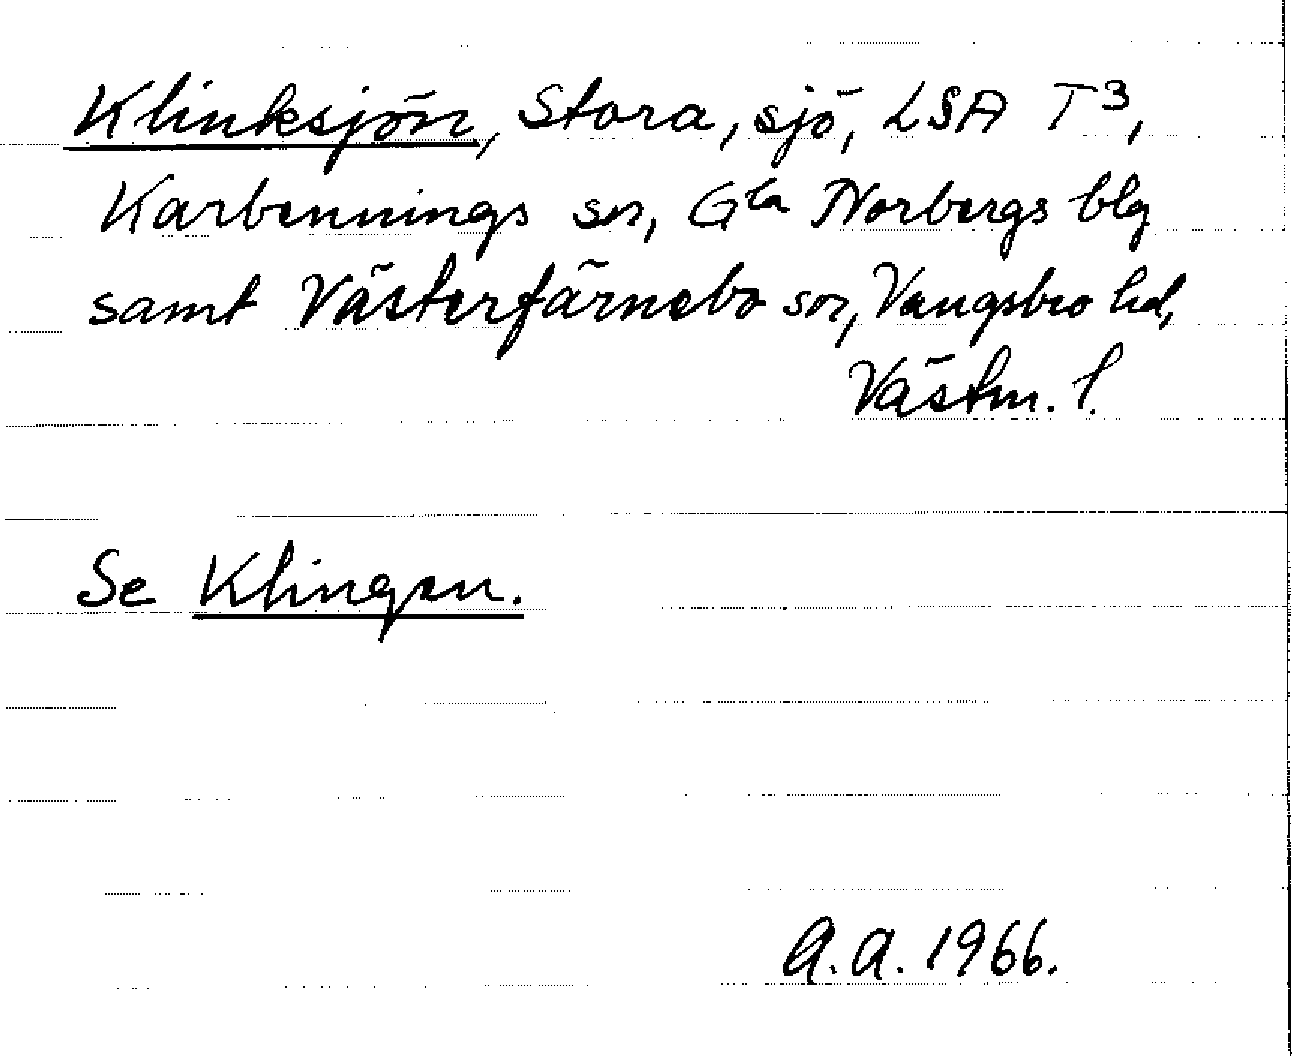 Klinksjön, Stora, sjö, LSA T3,
Karbennings sn, Gla Norbergs blg
samt Västerfärnebo sn, Vangsbro hd,
Västm. l.
Se Klingen.
A.A. 1966.